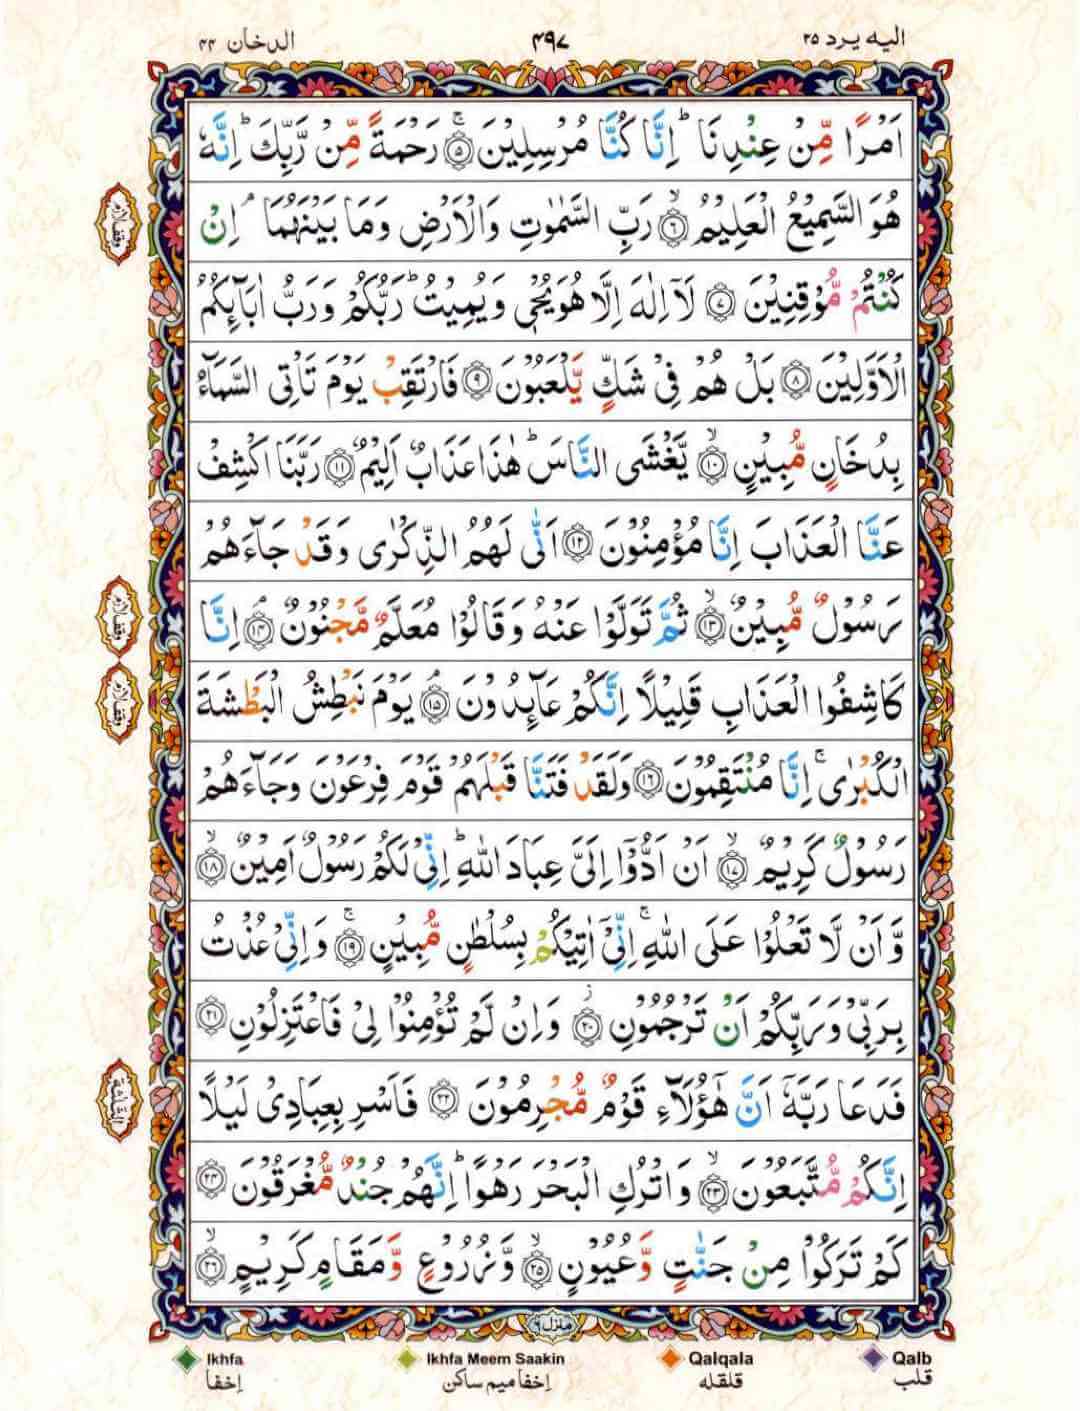 الیه یرد ۲۵
۴۹۷
الدخان ۴۴
اَمْرًا مِّنْ عِنْدِنَا ؕ اِنَّا كُنَّا مُرْسِلِیْنَ ۚ۝۵ رَحْمَةً مِّنْ رَّبِّكَ ؕ اِنَّهٗ
هُوَ السَّمِیْعُ الْعَلِیْمُ ۙ۝۶ رَبِّ السَّمٰوٰتِ وَالْاَرْضِ وَمَا بَیْنَهُمَا ۘ اِنْ
كُنْتُمْ مُّوْقِنِیْنَ ۝۷ لَاۤ اِلٰهَ اِلَّا هُوَ یُحْیٖ وَیُمِیْتُ ؕ رَبُّكُمْ وَرَبُّ اٰبَآىِٕكُمُ
الْاَوَّلِیْنَ ۝۸ بَلْ هُمْ فِیْ شَكٍّ یَّلْعَبُوْنَ ۝۹ فَارْتَقِبْ یَوْمَ تَاْتِی السَّمَآءُ
بِدُخَانٍ مُّبِیْنٍ ۙ۝۱۰ یَّغْشَی النَّاسَ ؕ هٰذَا عَذَابٌ اَلِیْمٌ ۝۱۱ رَبَّنَا اكْشِفْ
عَنَّا الْعَذَابَ اِنَّا مُؤْمِنُوْنَ ۝۱۲ اَنّٰی لَهُمُ الذِّكْرٰی وَقَدْ جَآءَهُمْ
رَسُوْلٌ مُّبِیْنٌ ۙ۝۱۳ ثُمَّ تَوَلَّوْا عَنْهُ وَقَالُوْا مُعَلَّمٌ مَّجْنُوْنٌ ۘ۝۱۴ اِنَّا
كَاشِفُوا الْعَذَابِ قَلِیْلًا اِنَّكُمْ عَآىِٕدُوْنَ ۘ۝۱۵ یَوْمَ نَبْطِشُ الْبَطْشَةَ
الْكُبْرٰی ۚ اِنَّا مُنْتَقِمُوْنَ ۝۱۶ وَلَقَدْ فَتَنَّا قَبْلَهُمْ قَوْمَ فِرْعَوْنَ وَجَآءَهُمْ
رَسُوْلٌ كَرِیْمٌ ۙ۝۱۷ اَنْ اَدُّوْۤا اِلَیَّ عِبَادَ اللّٰهِ ؕ اِنِّیْ لَكُمْ رَسُوْلٌ اَمِیْنٌ ۙ۝۱۸
وَّاَنْ لَّا تَعْلُوْا عَلَی اللّٰهِ ۚ اِنِّیْۤ اٰتِیْكُمْ بِسُلْطٰنٍ مُّبِیْنٍ ۚ۝۱۹ وَاِنِّیْ عُذْتُ
بِرَبِّیْ وَرَبِّكُمْ اَنْ تَرْجُمُوْنِ ؗ۝۲۰ وَاِنْ لَّمْ تُؤْمِنُوْا لِیْ فَاعْتَزِلُوْنِ ۝۲۱
فَدَعَا رَبَّهٗۤ اَنَّ هٰۤؤُلَآءِ قَوْمٌ مُّجْرِمُوْنَ ۝۲۲ فَاَسْرِ بِعِبَادِیْ لَیْلًا
اِنَّكُمْ مُّتَّبَعُوْنَ ۙ۝۲۳ وَاتْرُكِ الْبَحْرَ رَهْوًا ؕ اِنَّهُمْ جُنْدٌ مُّغْرَقُوْنَ ۝۲۴
كَمْ تَرَكُوْا مِنْ جَنّٰتٍ وَّعُیُوْنٍ ۙ۝۲۵ وَّزُرُوْعٍ وَّمَقَامٍ كَرِیْمٍ ۙ۝۲۶
وقف لازم
وقف لازم
وقف لازم
الثلثة
منزل ۶
Ikhfa
Ikhfa Meem Saakin
Qalqala
Qalb
اِخفا
اِخفا میم ساکن
قلقله
قلب